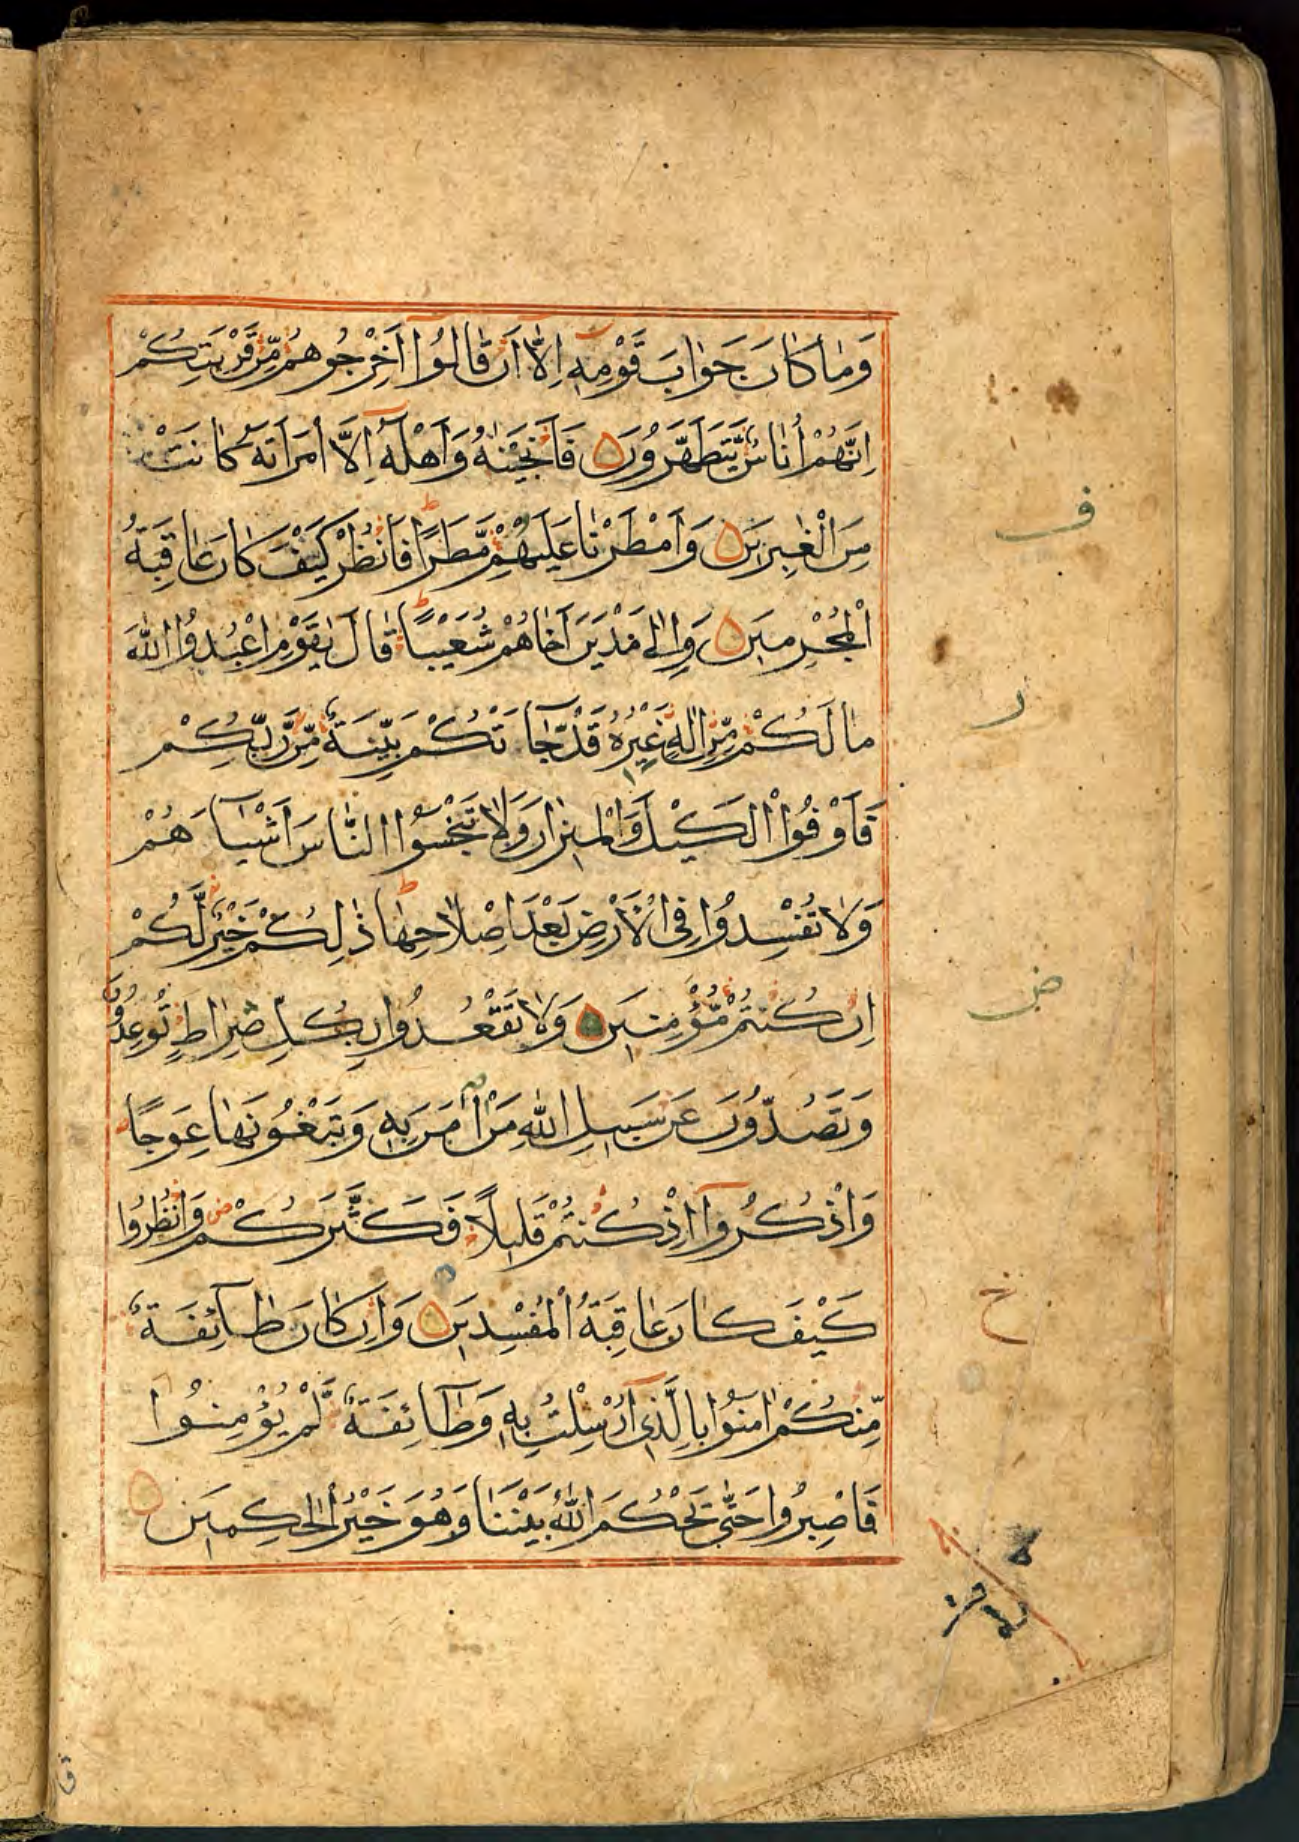 وَمَا كَانَ جَوَابَ قَوْمِهٖ اِلَّآ اَنْ قَالُوْٓا اَخْرِجُوهُمْ مِّنْ قَرْيَتِكُمْ
اِنَّهُمْ اُنَاسٌ يَّتَطَهَّرُوْنَ ۝ فَاَنْجَيْنٰهُ وَاَهْلَهٗٓ اِلَّا امْرَاَتَهٗ كَانَتْ
مِنَ الْغٰبِرِيْنَ ۝ وَاَمْطَرْنَا عَلَيْهِمْ مَّطَرًا ط فَانْظُرْ كَيْفَ كَانَ عَاقِبَةُ
الْمُجْرِمِيْنَ ۝ وَاِلٰى مَدْيَنَ اَخَاهُمْ شُعَيْبًا ط قَالَ يٰقَوْمِ اعْبُدُوا اللّٰهَ
مَا لَكُمْ مِّنْ اِلٰهٍ غَيْرُهٗ قَدْ جَآءَتْكُمْ بَيِّنَةٌ مِّنْ رَّبِّكُمْ
فَاَوْفُوا الْكَيْلَ وَالْمِيْزَانَ وَلَا تَبْخَسُوا النَّاسَ اَشْيَآءَهُمْ
وَلَا تُفْسِدُوْا فِى الْاَرْضِ بَعْدَ اِصْلَاحِهَا ط ذٰلِكُمْ خَيْرٌ لَّكُمْ
اِنْ كُنْتُمْ مُّؤْمِنِيْنَ ۝ وَلَا تَقْعُدُوْا بِكُلِّ صِرَاطٍ تُوْعِدُوْنَ
وَتَصُدُّوْنَ عَنْ سَبِيْلِ اللّٰهِ مَنْ اٰمَنَ بِهٖ وَتَبْغُوْنَهَا عِوَجًا
وَاذْكُرُوْٓا اِذْ كُنْتُمْ قَلِيْلًا فَكَثَّرَكُمْ ص وَانْظُرُوْا
كَيْفَ كَانَ عَاقِبَةُ الْمُفْسِدِيْنَ ۝ وَاِنْ كَانَ طَآئِفَةٌ
مِّنْكُمْ اٰمَنُوْا بِالَّذِيْٓ اُرْسِلْتُ بِهٖ وَطَآئِفَةٌ لَّمْ يُؤْمِنُوْا
فَاصْبِرُوْا حَتّٰى يَحْكُمَ اللّٰهُ بَيْنَنَا وَهُوَ خَيْرُ الْحٰكِمِيْنَ ۝
ف
ر
ض
خ